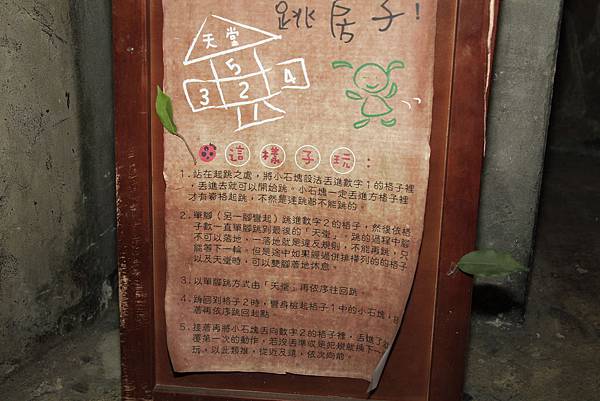 跳房子!
天堂
5
3 2 4
1
這樣子玩:
1.站在起跳之處，將小石塊設法丟進數字1的格子裡
，丟進去就可以開始跳。小石塊一定丟進方格子裡
才有資格起跳，不然是連跳都不能跳的。
2.單腳（另一腳彎起）跳進數字2的格子，然後依格
子數一直單腳跳到最後的「天堂」。跳的過程中腳
不可以落地，一落地就是違反規則，不能再跳，只
能等下一輪。但是途中如果經過併排橫列的的格子
以及天堂時，可以雙腳著地休息。
3.以單腳跳方式由「天堂」再依序往回跳。
4.跳回到格子2時，彎身撿起格子1中的小石塊，
著再依序跳回起點
5.接著再將小石塊丟向數字2的格子裡，丟進了
覆第一次的動作，若沒丟準或是犯規就換下一
玩，以此類推，從近及遠，依次向前。